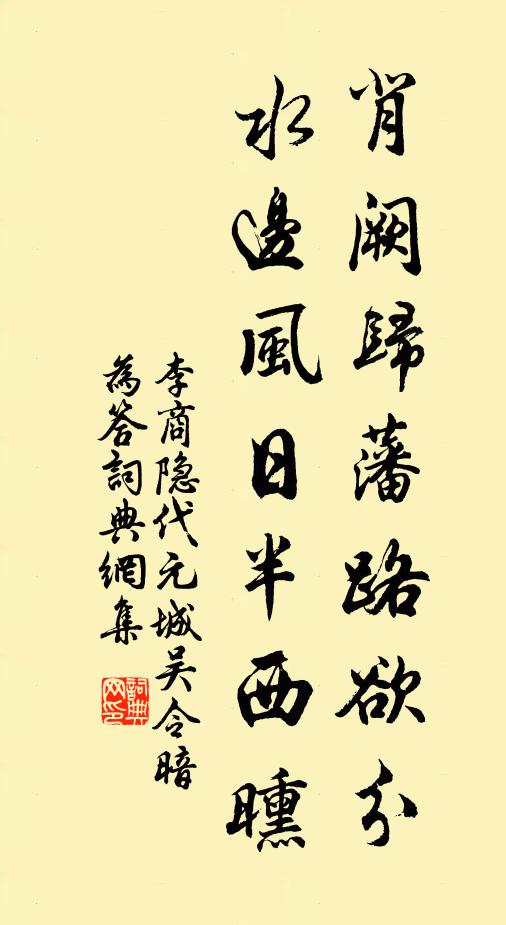 背阙歸藩路欲分
水邊風日半西曛
李商隐代元城吴令暗
為答詞典網集
詞典
网印